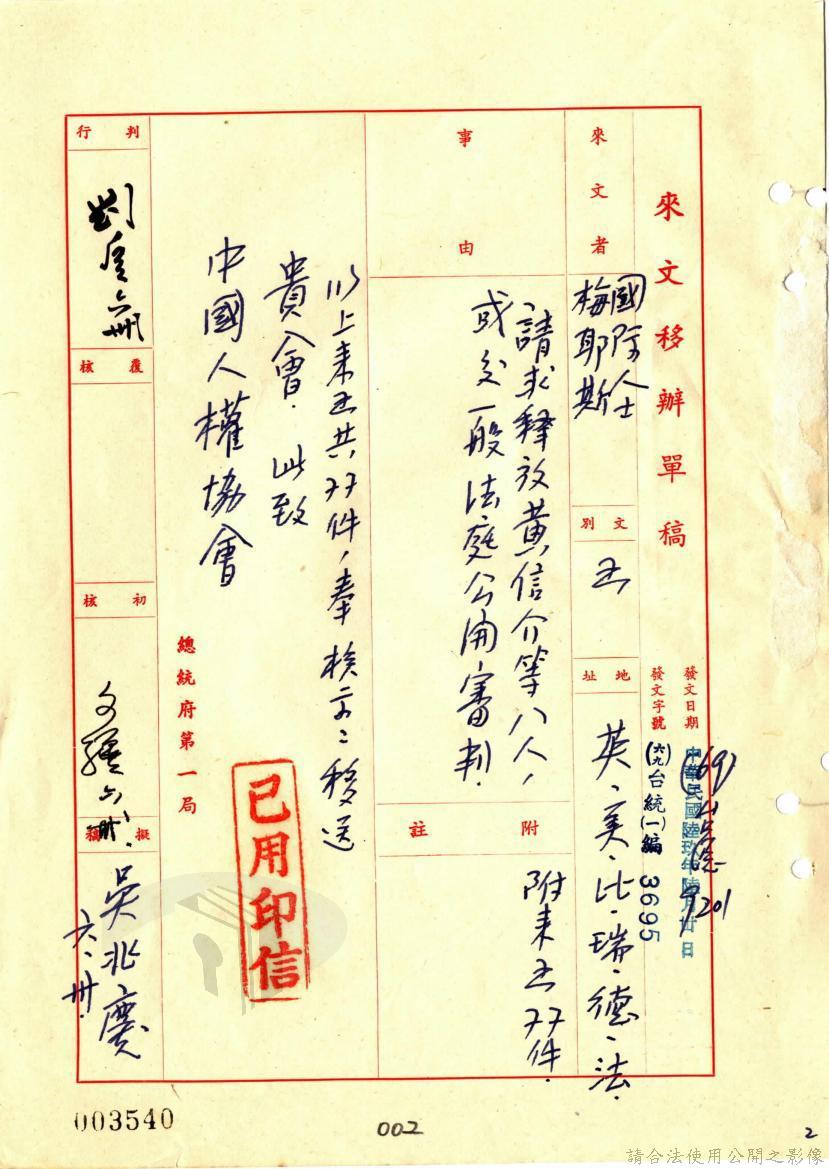 來文移辦單稿
發文日期
中華民國陸玖年陸月廿日
發文字號
(六九)台統(一)編 3695
來文者
國際人士
梅耶斯
文別
函
地址
英、美、比、瑞、德、法
事由
請求釋放黃信介等八人，
或交一般法庭公開審判．
附註
附來函77件．
以上來函共77件，奉核示：移送
貴會．此致
中國人權協會
總統府第一局
已用印信
判行
覆核
初核
擬稿
吳北慶
六、卅．
003540
002
2
請合法使用公開之影像